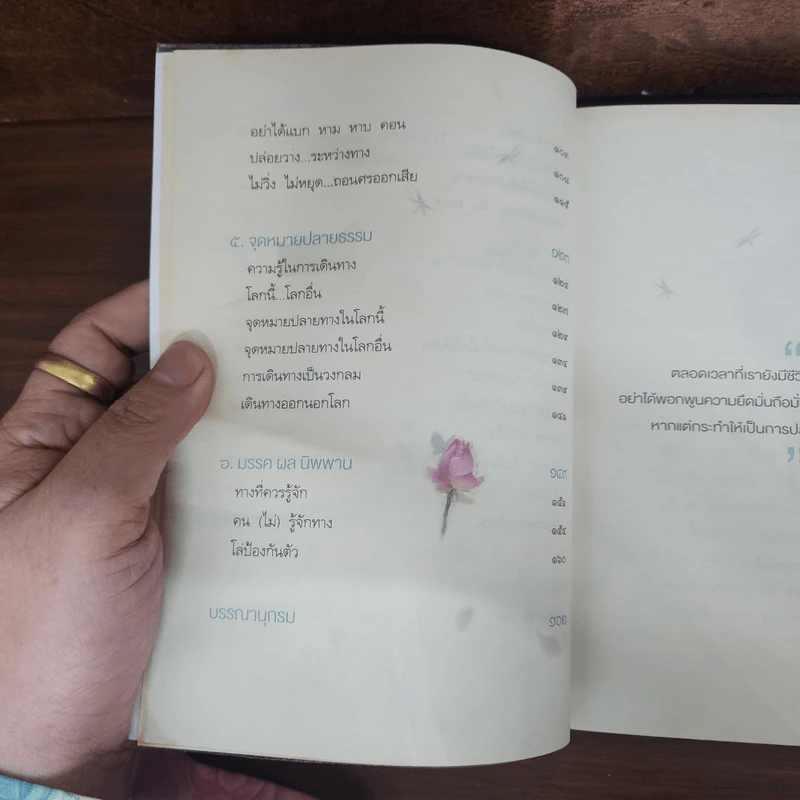 อย่าได้แบก หาม หาบ คอน ๑๐๓
ปล่อยวาง...ระหว่างทาง ๑๐๘
ไม่วิ่ง ไม่หยุด...ถอนศรออกเสีย ๑๑๕
๕. จุดหมายปลายธรรม ๑๒๓
ความรู้ในการเดินทาง ๑๒๔
โลกนี้...โลกอื่น ๑๒๗
จุดหมายปลายทางในโลกนี้ ๑๒๙
จุดหมายปลายทางในโลกอื่น ๑๓๔
การเดินทางเป็นวงกลม ๑๓๙
เดินทางออกนอกโลก
๖. มรรค ผล นิพพาน ๑๔๙
ทางที่ควรรู้จัก ๑๕๑
คน (ไม่) รู้จักทาง ๑๕๔
โล่ป้องกันตัว ๑๖๐
บรรณานุกรม
“
ตลอดเวลาที่เรายังมีชีวิ
อย่าได้พอกพูนความยึดมั่นถือมั่
หากแต่กระทำให้เป็นการปล
”